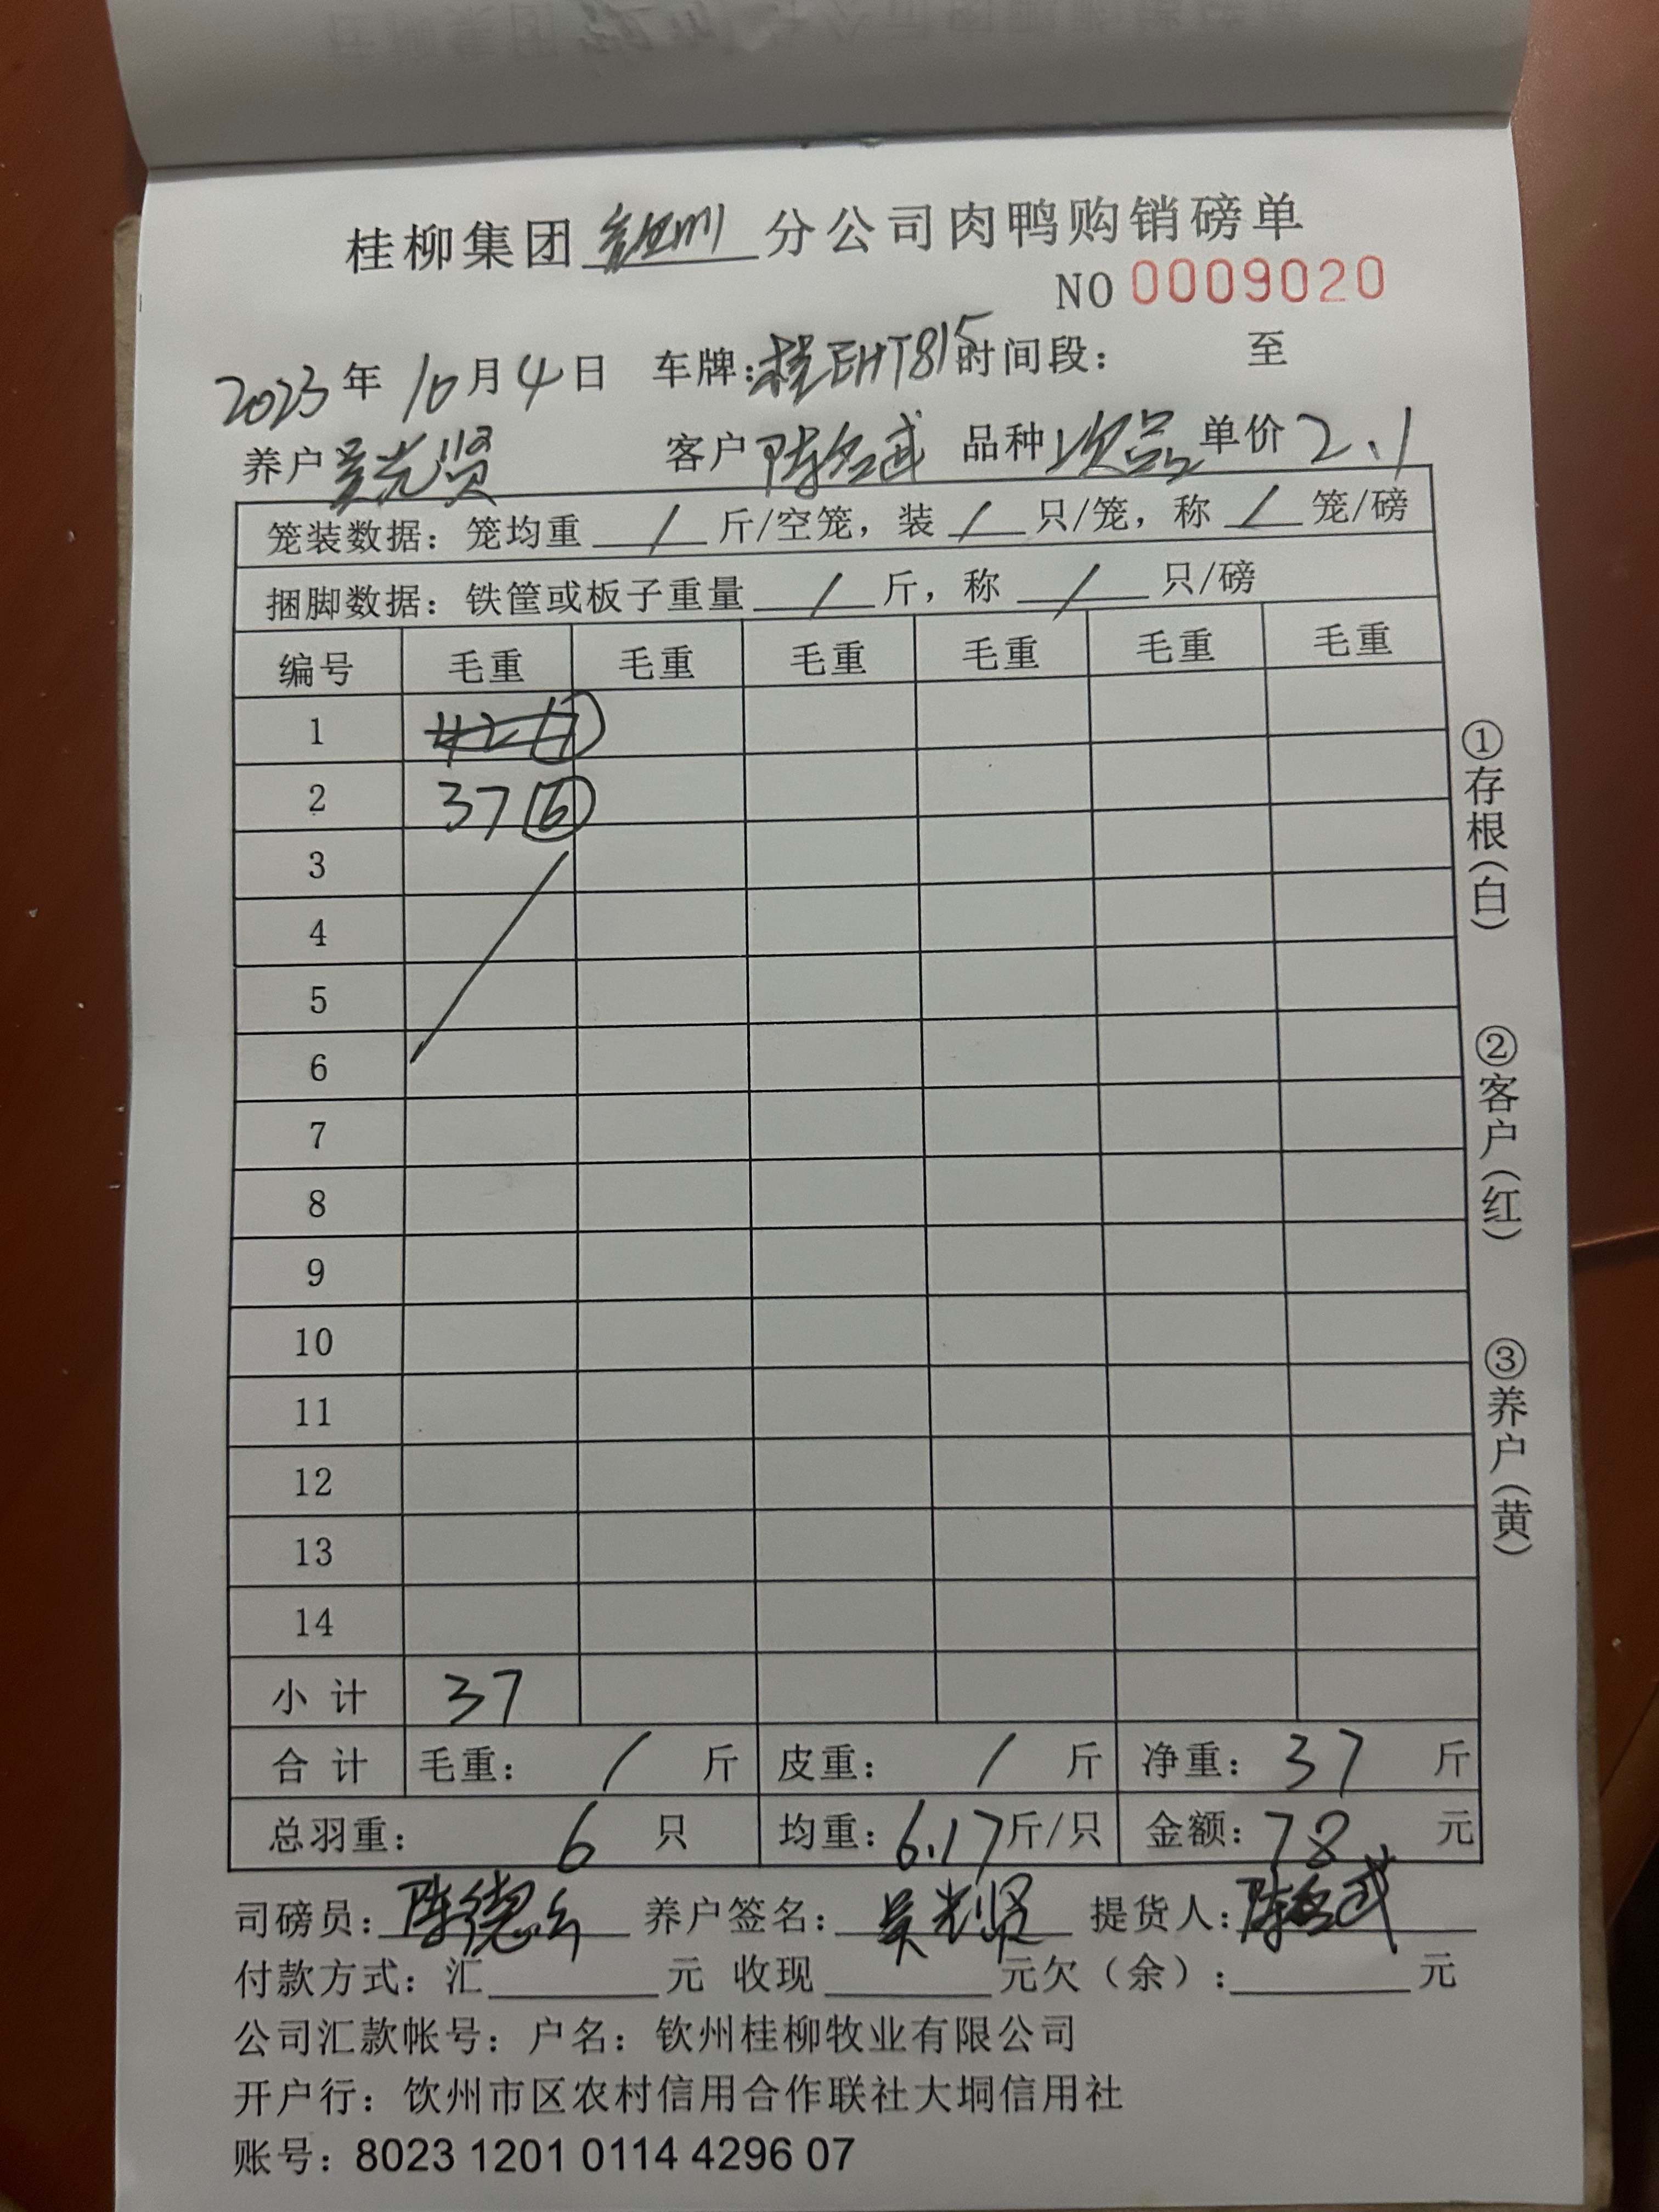 桂柳集团 钦州 分公司肉鸭购销磅单
NO 0009020
2023年10月4日 车牌:桂EHT815时间段: 至
养户吴光贤 客户陈名武 品种次品单价2.1
笼装数据: 笼均重 / 斤/空笼, 装 / 只/笼, 称 / 笼/磅
捆脚数据: 铁筐或板子重量 / 斤, 称 / 只/磅
编号 毛重 毛重 毛重 毛重 毛重 毛重
1
2 37 6
3
4
5
6
7
8
9
10
11
12
13
14
小 计 37
合 计 毛重: / 斤 皮重: / 斤 净重: 37 斤
总羽重: 6 只 均重: 6.17斤/只 金额: 78. 元
司磅员: 陈德 养户签名: 吴光贤 提货人: 陈名武
付款方式: 汇 元 收现 元欠(余): 元
公司汇款帐号: 户名: 钦州桂柳牧业有限公司
开户行: 钦州市区农村信用合作联社大垌信用社
账号: 8023 1201 0114 4296 07
①存根(白)
②客户(红)
③养户(黄)